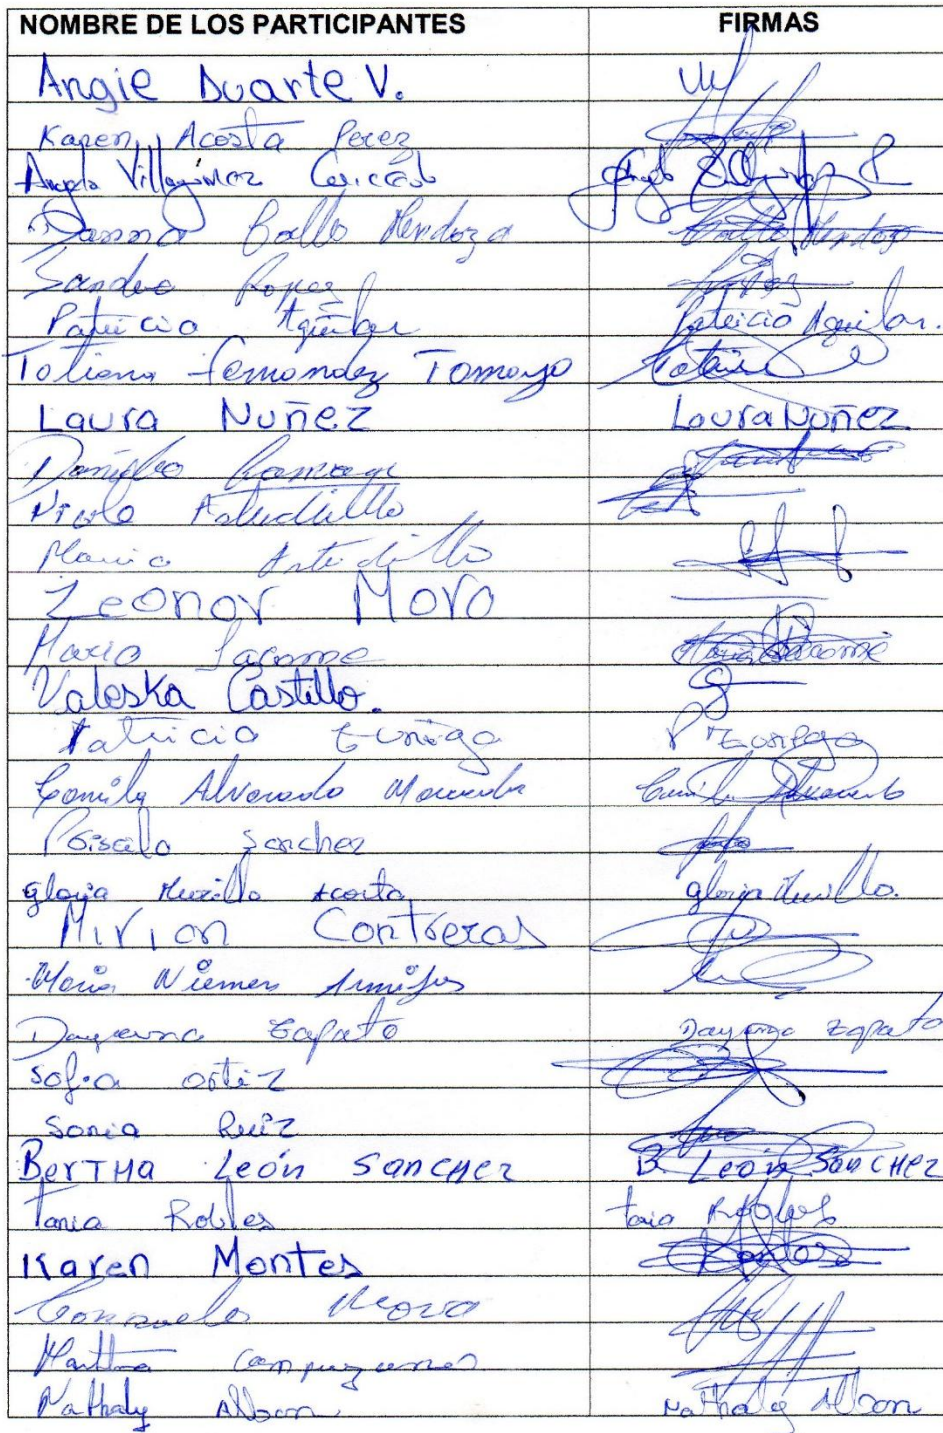 NOMBRE DE LOS PARTICIPANTES FIRMAS
Angie Duarte V.
Karen Acosta Perez
Angela Villagómez
Danna Ballo Mendoza Mendoza
Sandra
Patricia Aguilar Patricia Aguilar.
Tatiana Fernandez Tamayo
Laura Nuñez Laura Nuñez
Daniela
Nicole Astudillo
Maria Astudillo
Leonor Mora
Maria Jacome Maria Jacome
Valeska Castillo.
Patricia Zuñiga P Zuñiga
Camila Alvarado Camila Alvarado
Priscila Sanchez
gloria Murillo Acosta gloria Murillo.
Mirian Contreras
Maria
Dayanna Zapata Dayanna Zapata
Sofia Ortiz
Sonia Ruiz
BerTHa León SanCHez B León SanCHez
Tania Robles tania Robles
Karen Montes
Consuelo Mora
Martha Campuzano
Nathaly Alban Nathaly Alban